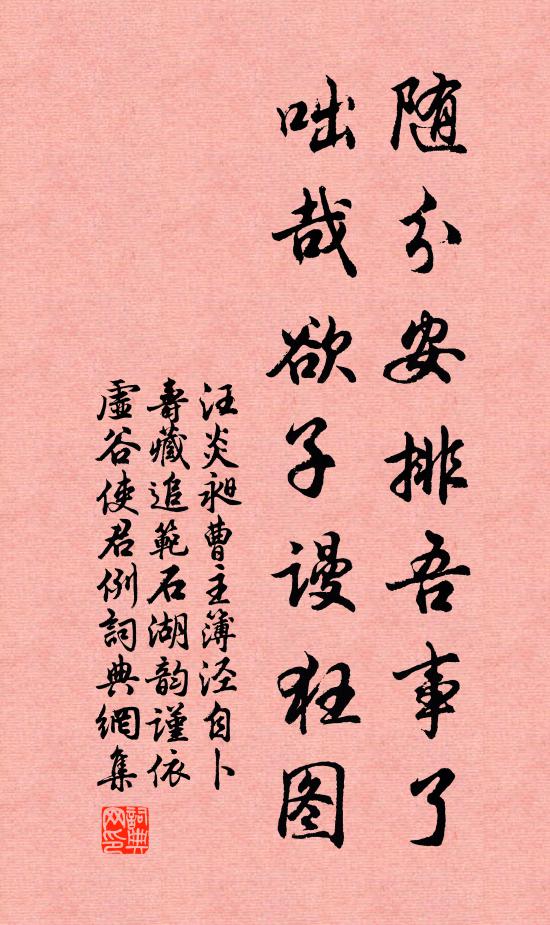 随分安排吾事了
咄哉欲子谩狂图
汪炎昶曹主簿泾自卜
寿藏追範石湖韵谨依
虚谷使君例詞典網集
詞典网印